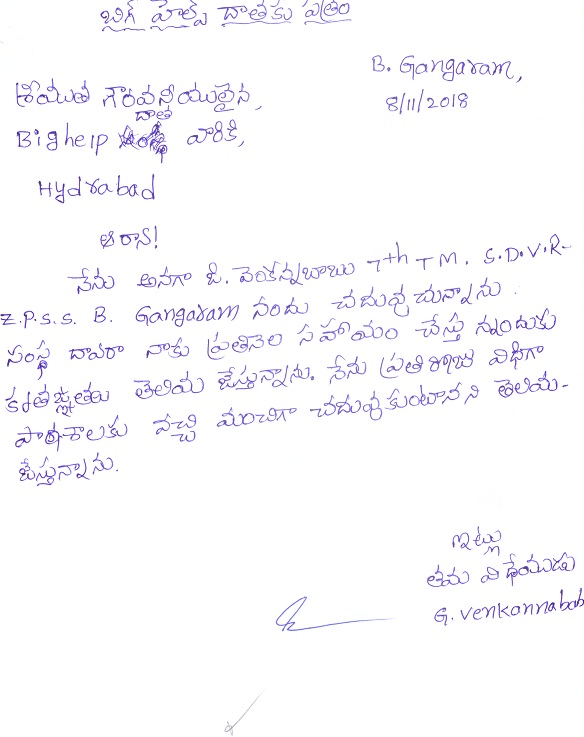 బిగ్ హెల్ప్ దాతకు పత్రం
B. Gangaram,
8/11/2018
శ్రీయుత గౌరవనీయులైన,
దాత
Bighelp వారికి,
Hydrabad
ఆరాన!
నేను అనగా జి. వెంకన్నబాబు 7th TM. S.D.V.R-
Z.P.S.S. B. Gangaram నందు చదువు చున్నాను.
సంస్థ దావరా నాకు ప్రతినెల సహాయం చేస్తున్నందుకు
కృతజ్ఞతలు తెలియ జేస్తున్నాను. నేను ప్రతిరోజు విధిగా
పాఠశాలకు వచ్చి మంచిగా చదువుకుంటానని తెలియ-
జేస్తున్నాను.
ఇట్లు
తమ విధేయుడు
G. Venkannabab